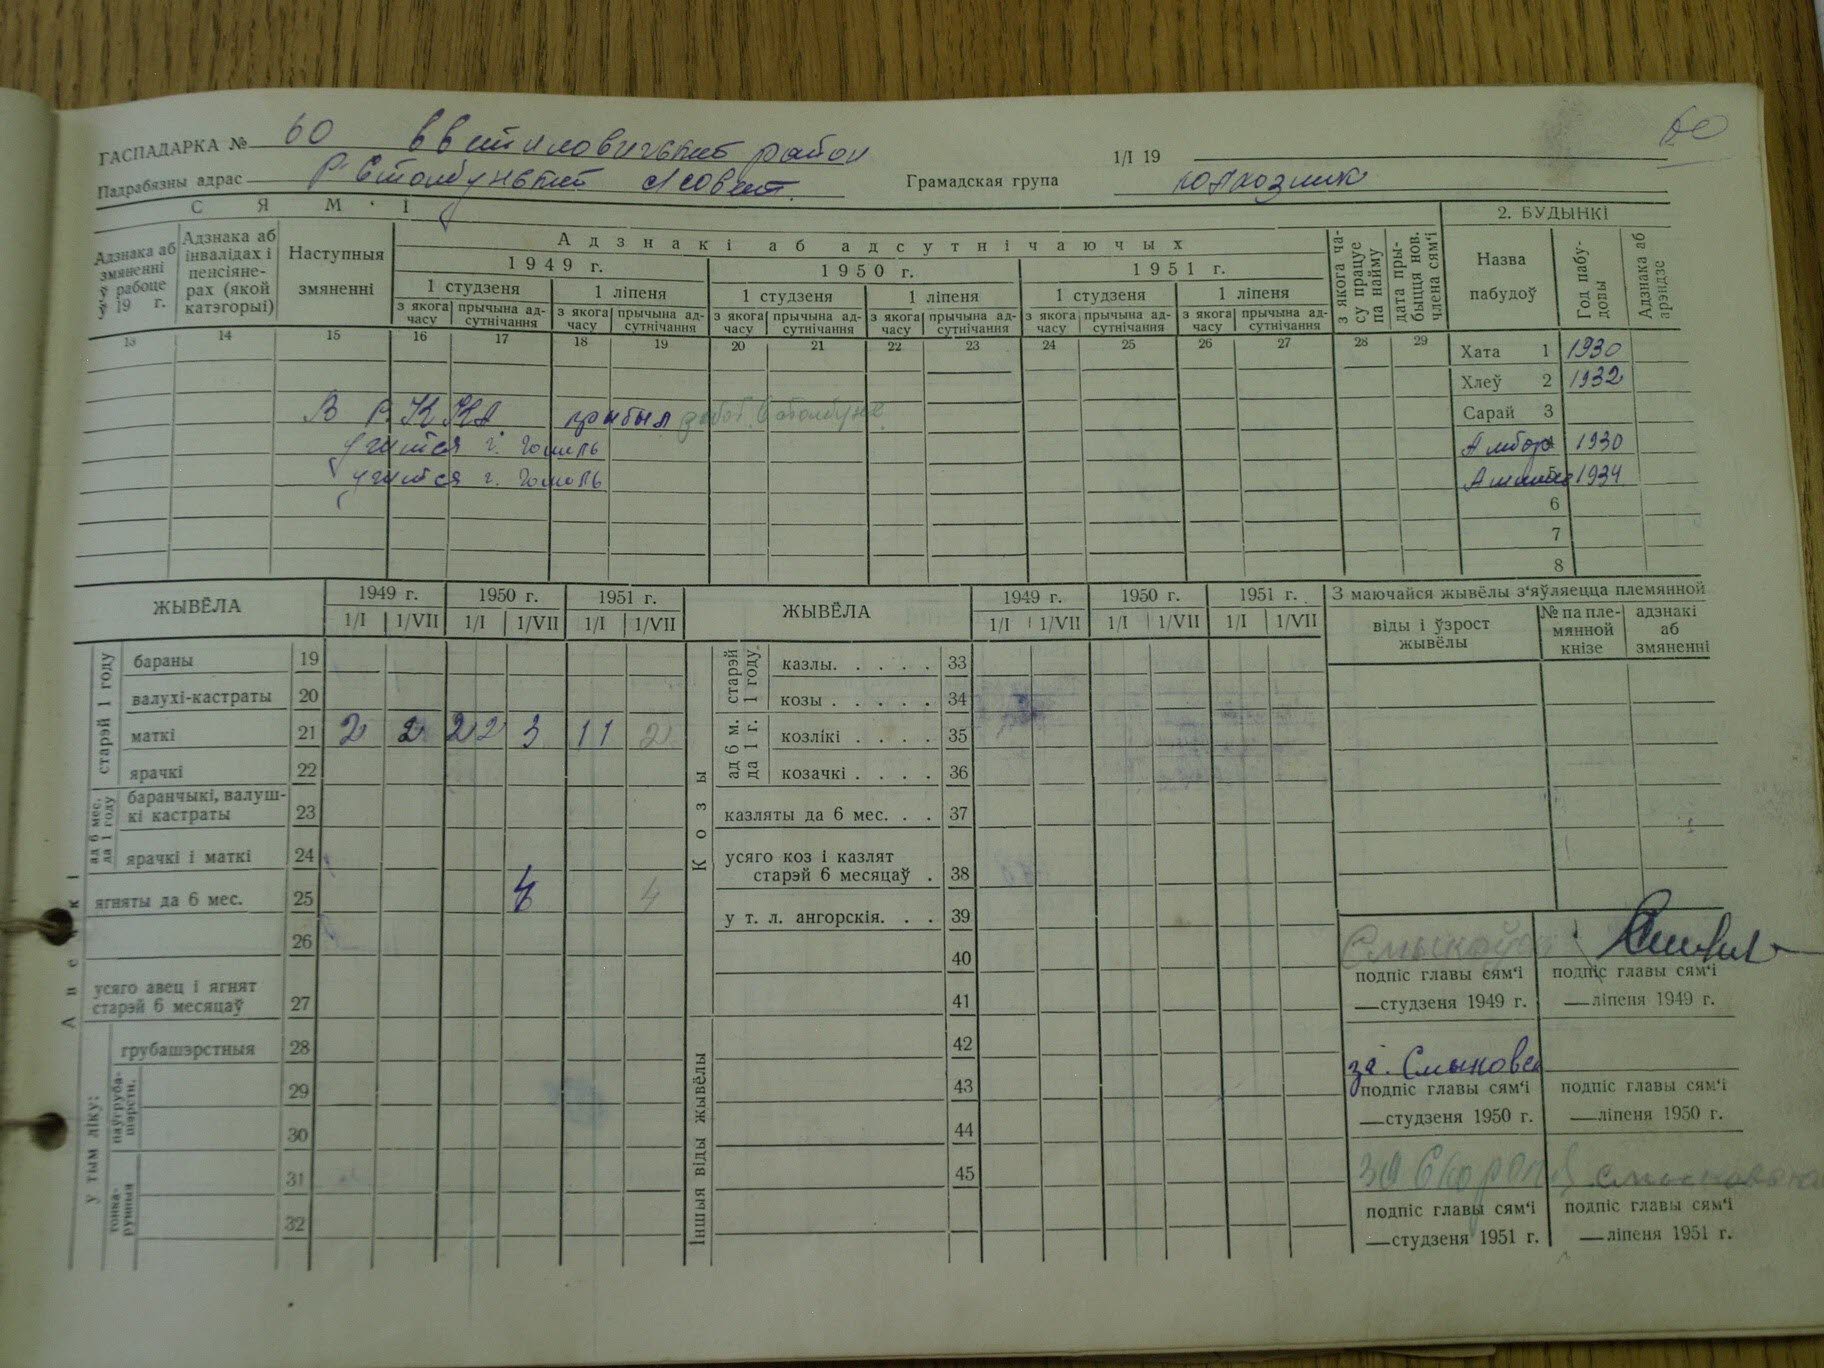 ГАСПАДАРКА № 60 Ветиловичский район
1/I 19
60
Падрабязны адрас Столбунский с/совет. Грамадская група колхозник
С Я М ' І
2. БУДЫНКІ
Адзнака аб змяненні ў рабоце ў 19 г.
Адзнака аб інвалідах і пенсіянерах (якой катэгорыі)
Наступныя змяненні
Адзнакі аб адсутнічаючых
1949 г. 1950 г. 1951 г.
1 студзеня 1 ліпеня 1 студзеня 1 ліпеня 1 студзеня 1 ліпеня
з якога часу прычына адсутнічання з якога часу прычына адсутнічання з якога часу прычына адсутнічання з якога часу прычына адсутнічання з якога часу прычына адсутнічання з якога часу прычына адсутнічання
з якога часу працуе па найму
дата прыбыцця нов. члена сям'і
Назва пабудоў
Год пабудовы
Адзнака аб арэндзе
13 14 15 16 17 18 19 20 21 22 23 24 25 26 27 28 29
Хата 1 1930
Хлеў 2 1932
Сарай 3
В РККА. прибыл работ. Столбуне
Амбар 1930
учится г. Гомель
1934
учится г. Гомель
6
7
8
ЖЫВЁЛА 1949 г. 1950 г. 1951 г. ЖЫВЁЛА 1949 г. 1950 г. 1951 г. З маючайся жывёлы з'яўляецца племянной
1/I 1/VII 1/I 1/VII 1/I 1/VII 1/I 1/VII 1/I 1/VII 1/I 1/VII
віды і ўзрост жывёлы
№ па племянной кнізе
адзнакі аб змяненні
Авечкі
старэй 1 году
бараны 19
валухі-кастраты 20
маткі 21 2 2 22 3 11 2
ярачкі 22
ад 6 мес. да 1 году
баранчыкі, валушкі кастраты 23
ярачкі і маткі 24
ягняты да 6 мес. 25 4 4
26
усяго авец і ягнят старэй 6 месяцаў 27
у тым ліку:
грубашэрстныя 28
паўгрубашэрстн.
29
30
тонкарунныя
31
32
Козы
старэй 1 году
казлы. . . . . 33
козы . . . . . 34
ад 6 м. да 1 г.
козлікі . . . . 35
козачкі . . . . 36
казляты да 6 мес. . . 37
усяго коз і казлят старэй 6 месяцаў . 38
у т. л. ангорскія. . . 39
40
41
Іншыя віды жывёлы
42
43
44
45
подпіс главы сям'і подпіс главы сям'і
—студзеня 1949 г. —ліпеня 1949 г.
за. Смыковск
подпіс главы сям'і подпіс главы сям'і
—студзеня 1950 г. —ліпеня 1950 г.
подпіс главы сям'і подпіс главы сям'і
—студзеня 1951 г. —ліпеня 1951 г.